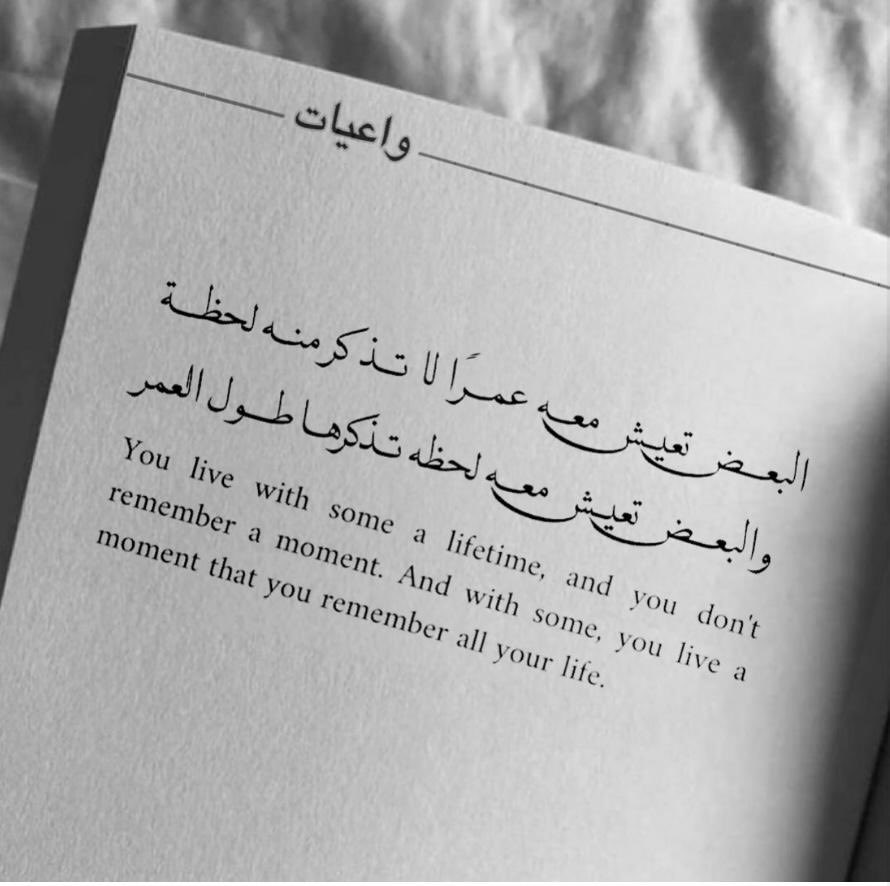 واعيات
البعض تعيش معه عمرًا لا تذكر منه لحظة
والبعض تعيش معه لحظه تذكرها طول العمر
You live with some a lifetime, and you don't
remember a moment. And with some, you live a
moment that you remember all your life.